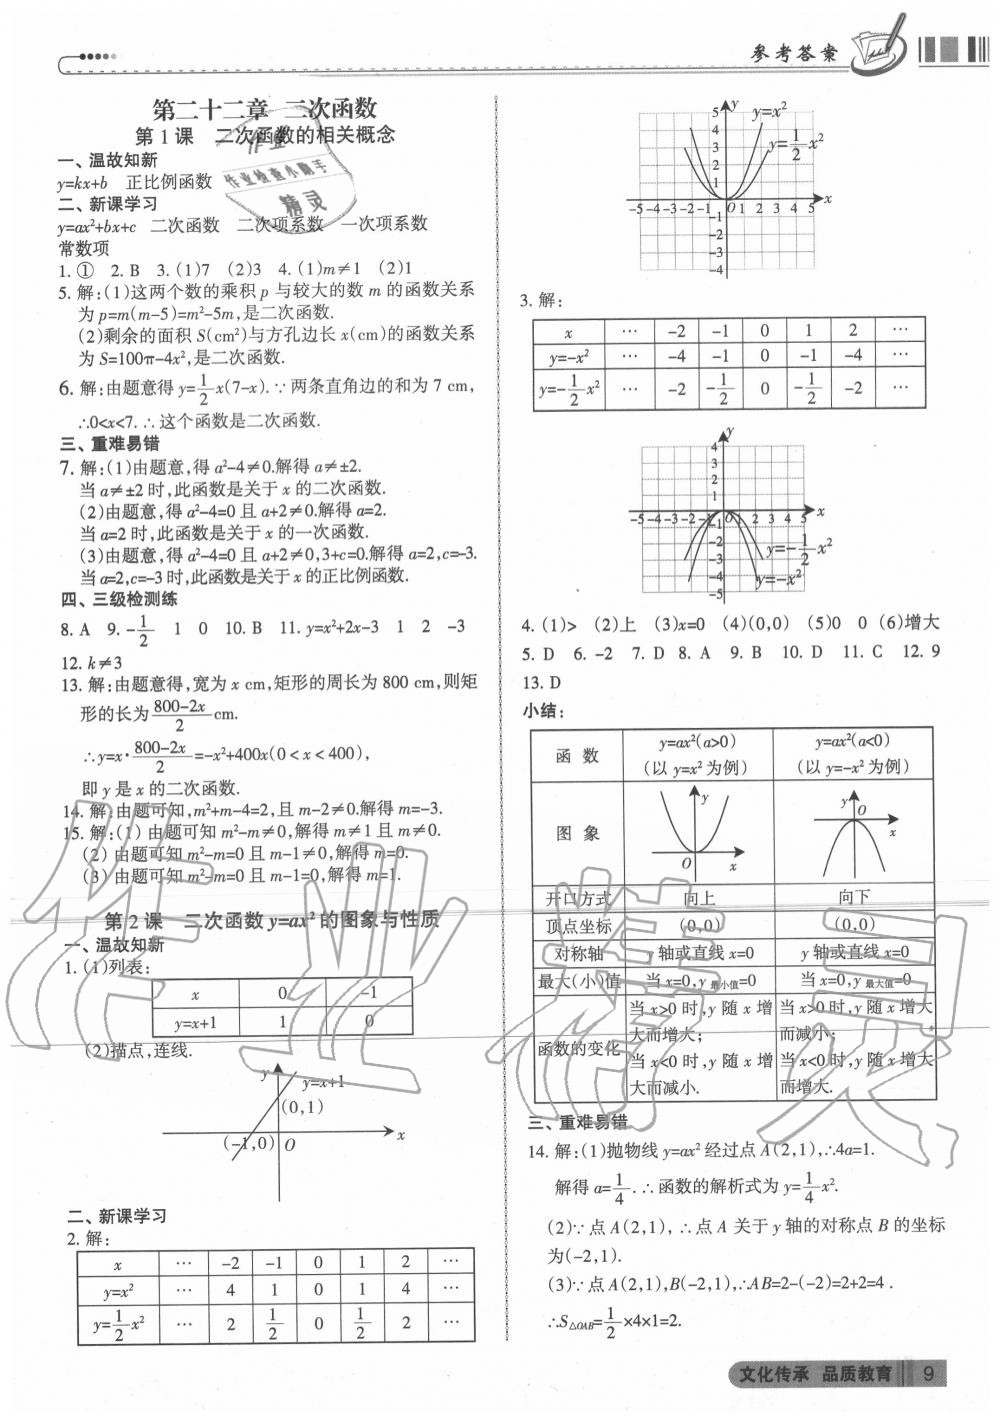 参考答案
第二十二章 二次函数
第1课 二次函数的相关概念
一、温故知新
y=kx+b 正比例函数
二、新课学习
y=ax²+bx+c 二次函数 二次项系数 一次项系数
常数项
1. ① 2. B 3. (1)7 (2)3 4. (1)m≠1 (2)1
5. 解:(1)这两个数的乘积 p 与较大的数 m 的函数关系
为 p=m(m-5)=m²-5m,是二次函数.
(2)剩余的面积 S(cm²)与方孔边长 x(cm)的函数关系
为 S=100π-4x²,是二次函数.
6. 解:由题意得 y=1/2 x(7-x). ∵两条直角边的和为 7 cm,
∴0<x<7. ∴这个函数是二次函数.
三、重难易错
7. 解:(1)由题意,得 a²-4≠0.解得 a≠±2.
当 a≠±2 时,此函数是关于 x 的二次函数.
(2)由题意,得 a²-4=0 且 a+2≠0.解得 a=2.
当 a=2 时,此函数是关于 x 的一次函数.
(3)由题意,得 a²-4=0 且 a+2≠0,3+c=0.解得 a=2,c=-3.
当 a=2,c=-3 时,此函数是关于 x 的正比例函数.
四、三级检测练
8. A 9. -1/2 1 0 10. B 11. y=x²+2x-3 1 2 -3
12. k≠3
13. 解:由题意得,宽为 x cm,矩形的周长为 800 cm,则矩
形的长为 (800-2x)/2 cm.
∴y=x·(800-2x)/2=-x²+400x(0<x<400),
即 y 是 x 的二次函数.
14. 解:由题可知,m²+m-4=2,且 m-2≠0.解得 m=-3.
15. 解:(1) 由题可知 m²-m≠0,解得 m≠1 且 m≠0.
(2) 由题可知 m²-m=0 且 m-1≠0,解得 m=0.
(3) 由题可知 m²-m=0 且 m-1=0,解得 m=1.
第2课 二次函数 y=ax² 的图象与性质
一、温故知新
1. (1)列表:
x 0 -1
y=x+1 1 0
(2)描点,连线.
y y=x+1
(0,1)
(-1,0) O x
二、新课学习
2. 解:
x … -2 -1 0 1 2 …
y=x² … 4 1 0 1 4 …
y=1/2 x² … 2 1/2 0 1/2 2 …
y y=x²
5
4
3 y=1/2 x²
2
1
-5 -4 -3 -2 -1 O 1 2 3 4 5 x
-1
-2
-3
-4
3. 解:
x … -2 -1 0 1 2 …
y=-x² … -4 -1 0 -1 -4 …
y=-1/2 x² … -2 -1/2 0 -1/2 -2 …
y
4
3
2
1
-5 -4 -3 -2 -1 O 1 2 3 4 5 x
-1
-2 y=-1/2 x²
-3
-4 y=-x²
-5
4. (1)> (2)上 (3)x=0 (4)(0,0) (5)0 0 (6)增大
5. D 6. -2 7. D 8. A 9. B 10. D 11. C 12. 9
13. D
小结:
函 数 y=ax²(a>0) (以 y=x² 为例) y=ax²(a<0) (以 y=-x² 为例)
图 象 y O x y O x
开口方式 向上 向下
顶点坐标 (0,0) (0,0)
对称轴 y 轴或直线 x=0 y 轴或直线 x=0
最大(小)值 当 x=0,y最小值=0 当 x=0,y最大值=0
函数的变化 当 x>0 时,y 随 x 增大而增大; 当 x<0 时,y 随 x 增大而减小. 当 x>0 时,y 随 x 增大而减小; 当 x<0 时,y 随 x 增大而增大.
三、重难易错
14. 解:(1)抛物线 y=ax² 经过点 A(2,1),∴4a=1.
解得 a=1/4. ∴函数的解析式为 y=1/4 x².
(2)∵点 A(2,1), ∴点 A 关于 y 轴的对称点 B 的坐标
为(-2,1).
(3)∵点 A(2,1),B(-2,1),∴AB=2-(-2)=2+2=4 .
∴S△OAB=1/2×4×1=2.
文化传承 品质教育 9
作业
作业检查小助手
精灵
作业精灵